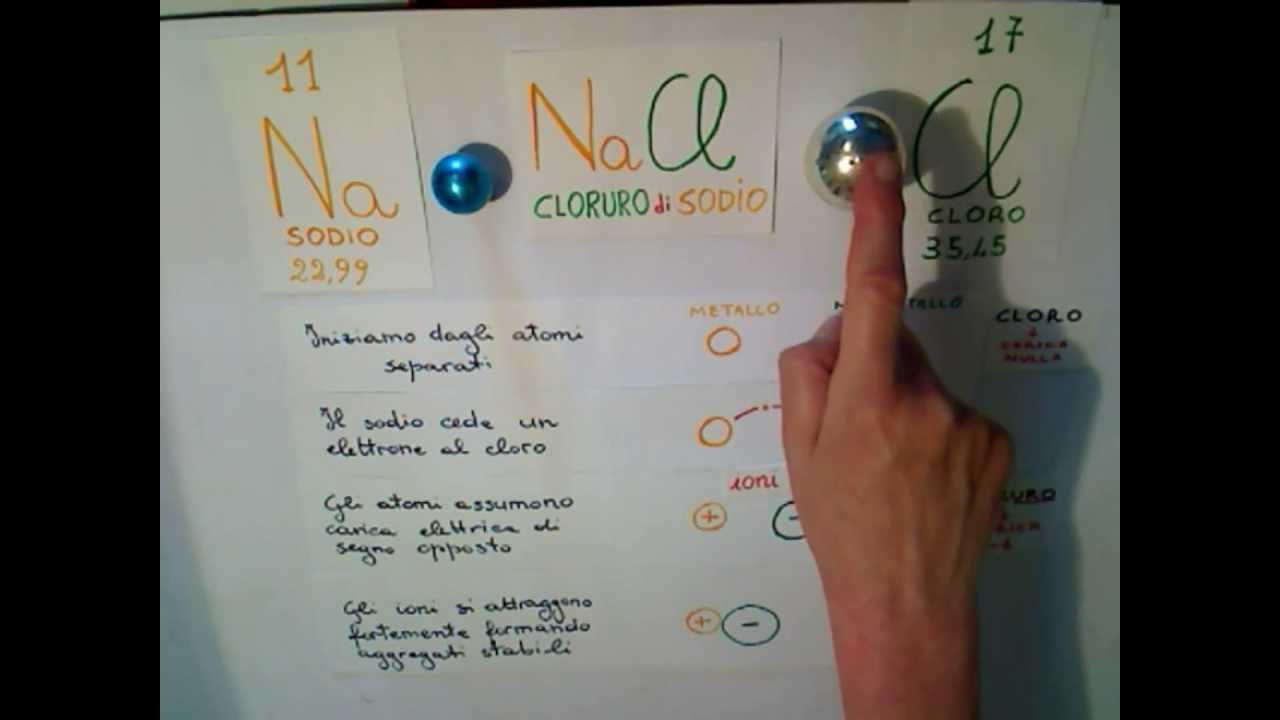 11
Na
SODIO
22,99
NaCl
CLORURO di SODIO
17
Cl
CLORO
35,45
Iniziamo dagli atomi
separati
METALLO
CLORO
CARICA
NULLA
Il sodio cede un
elettrone al cloro
Gli atomi assumono
carica elettrica di
segno opposto
ioni
+
-
Gli ioni si attraggono
fortemente formando
aggregati stabili
+
-